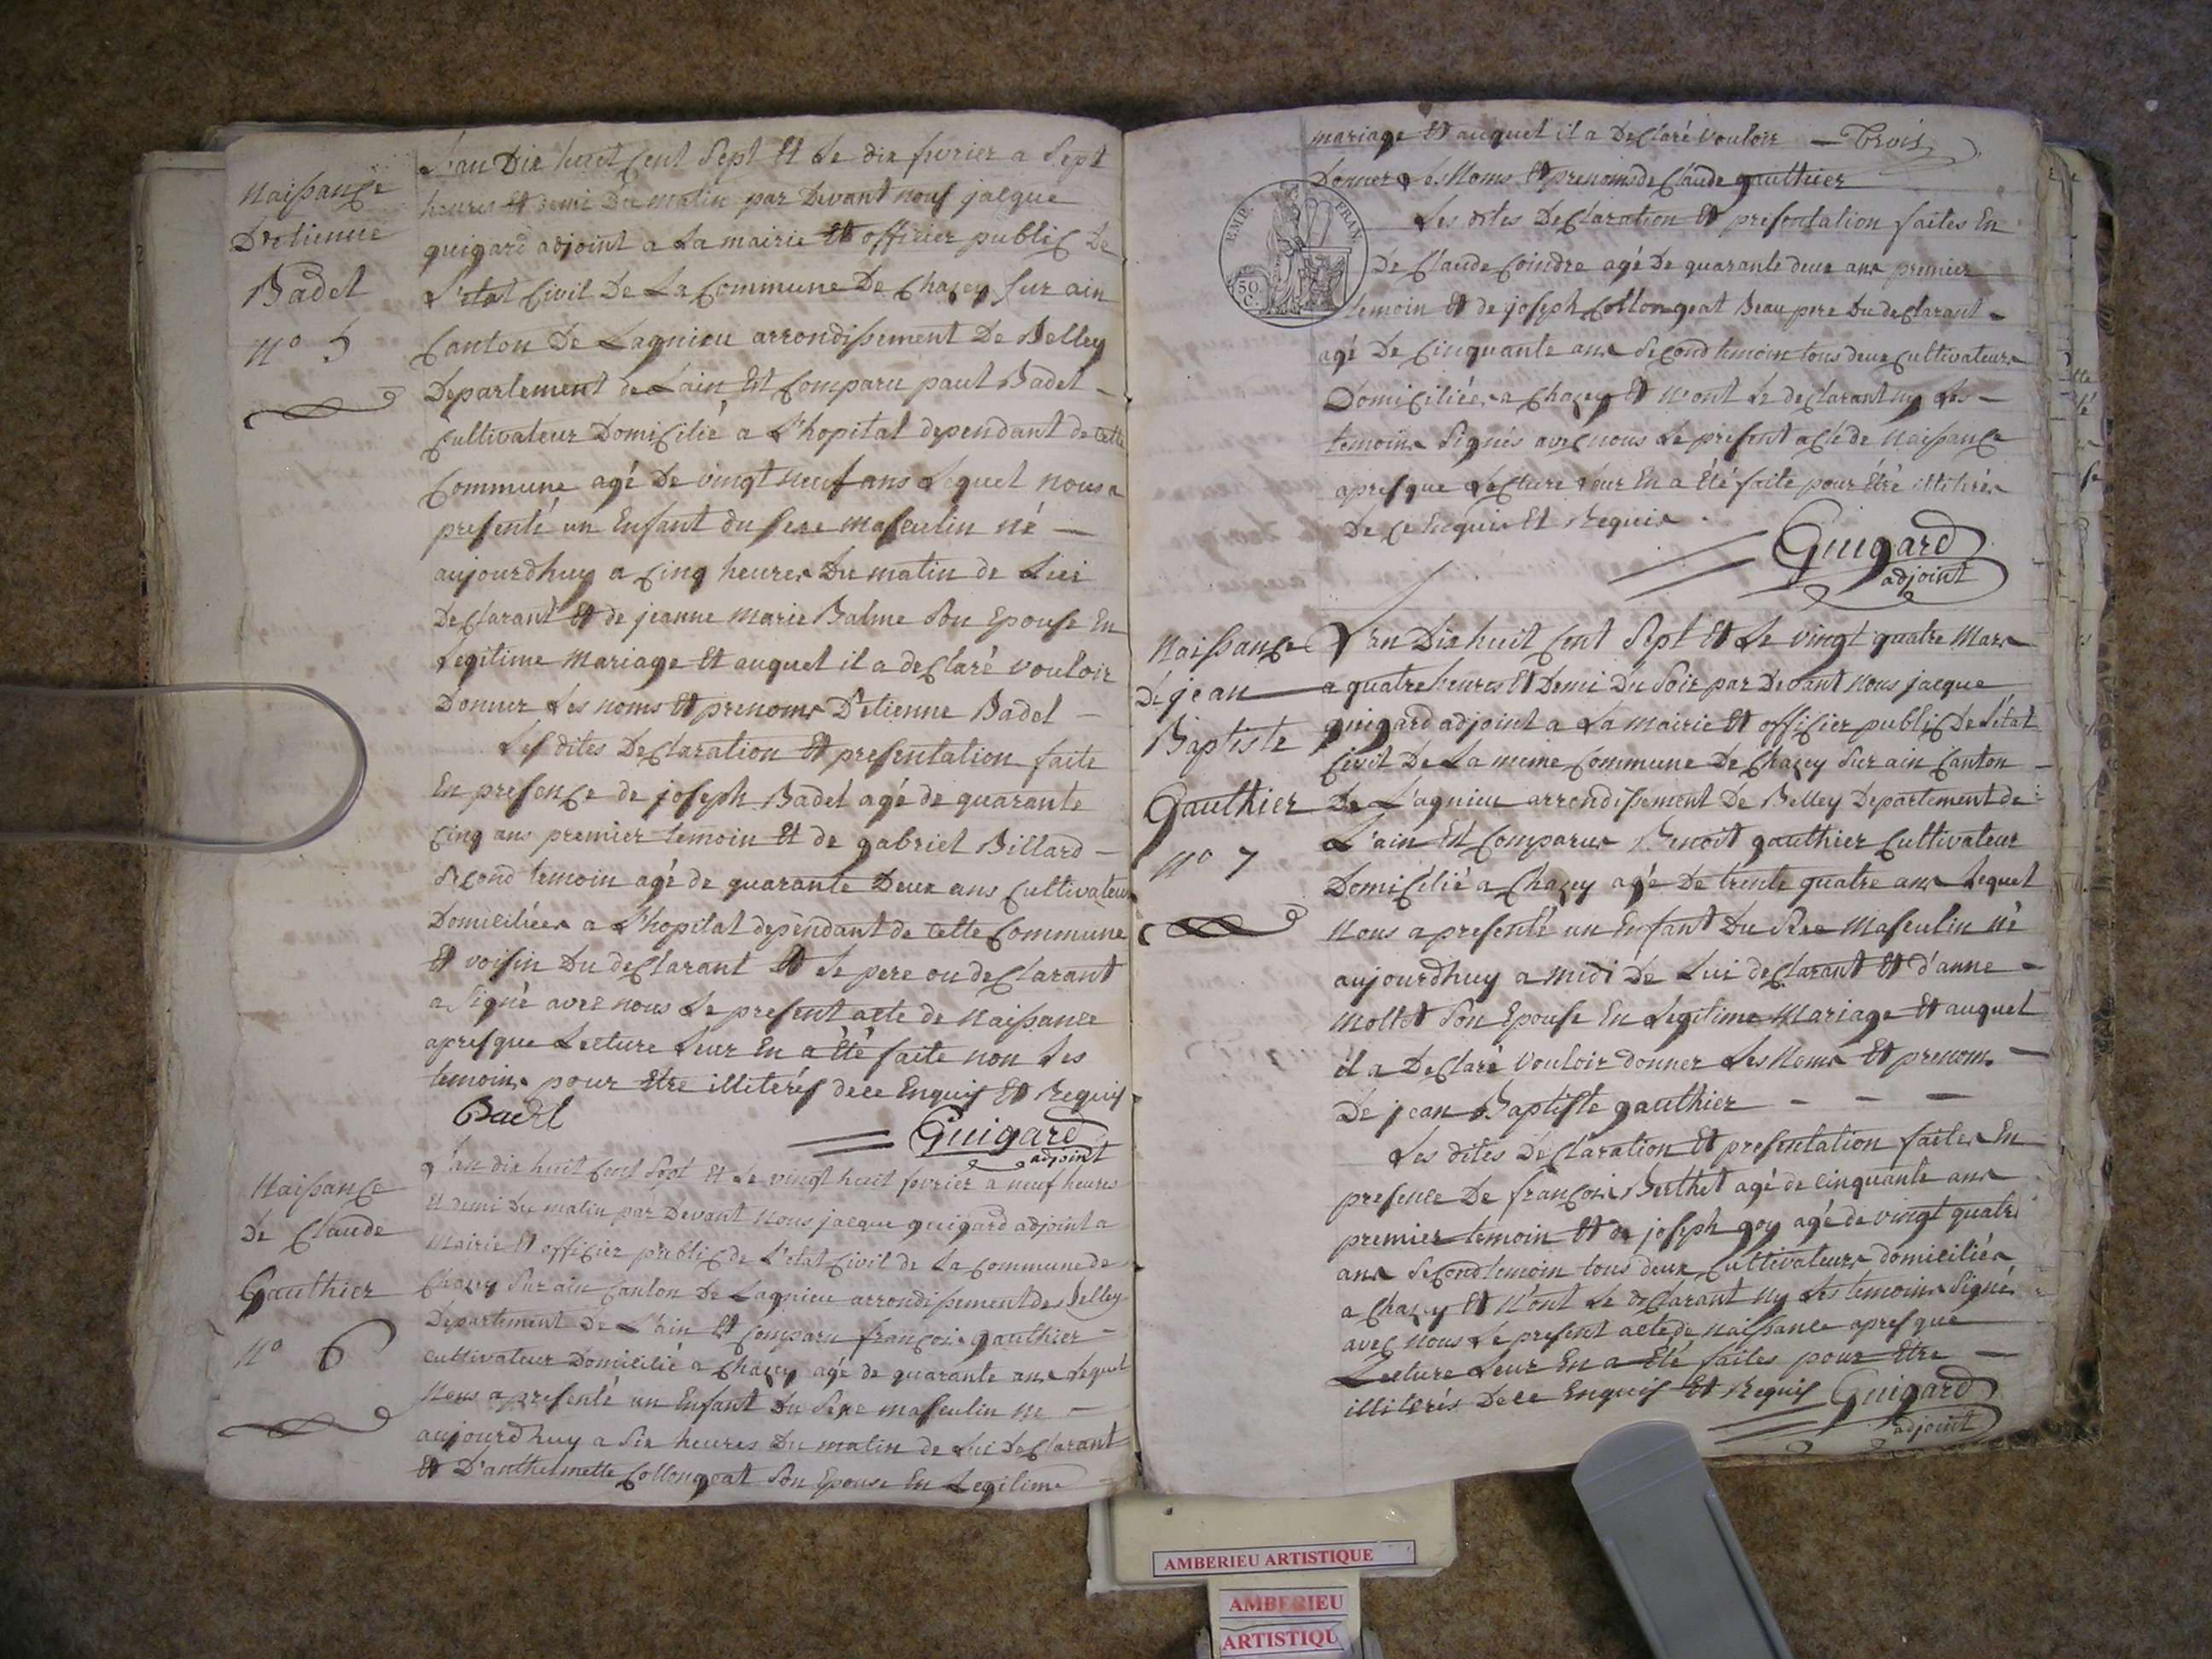 Naissance
D'etienne
Badel
N° 5
L'an Dix huit Cent Sept Et Le dix fevrier a Sept
heures Et demi Du matin par Devant nous jacque
guigard adjoint a La mairie Et officier public De
L'etat Civil De La Commune De Chazey Sur ain
Canton De Lagnieu arrondissement De Belley
Departement de L'ain Est Comparu paul Badel -
Cultivateur Domicilié a L'hopital dependant de cette
Commune agé De vingt neuf ans Lequel nous a
presenté un Enfant du sexe masculin né —
aujourdhuy a Cinq heures Du matin de Lui
Declarant Et de jeanne marie Balme Son Epouse En
Legitime Mariage Et auquel il a declaré vouloir
Donner Les noms Et prenoms D'etienne Badel -
Les dites Declaration Et presentation faite
En presence de joseph Badel agé de quarante
Cinq ans premier temoin Et de gabriel Billard -
Second temoin agé de quarante Deux ans Cultivateurs
Domiciliées a L'hopital dependant de cette Commune
Et voisin Du declarant Et Le pere ou declarant
a Signé avec nous Le present acte de Naissance
apres que Lecture Leur En a Eté faite non Les
temoins pour Etre illiterés de ce Enquis Et Requis
Badel
Guigard
adjoint
Naissance
de Claude
Gauthier
N° 6
L'an dix huit Cent Sept Et Le vingt huit fevrier a neuf heures
Et demi Du matin par Devant Nous jacque guigard adjoint a
Mairie Et officier public de L'etat Civil de La Commune de
Chazey Sur ain Canton De Lagnieu arrondissement de Belley
Departement De L'ain Est Comparu françois gauthier -
cultivateur Domicilié a Chazey agé de quarante ans Lequel
Nous a presenté un Enfant Du Sexe masculin né -
aujourdhuy a Six heures Du matin de Lui Declarant
Et D'anthelmette Collongeat Son Epouse En Legitime
mariage Et auquel il a Declaré vouloir — Trois
Donner Les Noms Et prenoms de Claude gauthier
EMP. FRAN.
50 C.
Les dites Declaration Et presentation faites En
De Claude Coindre agé De quarante deux ans premier
temoin Et de joseph Collongeat Beau pere Du declarant -
agé De Cinquante ans Second temoin tous deux Cultivateurs
Domiciliées a Chazey Et N'ont Le declarant ny Les -
temoins Signés avec nous Le present acte de Naissance
apres que Lecture Leur En a Eté faite pour Etre illiterés
De Ce Enquis Et Requis.
Guigard
adjoint
Naissance
de jean
Baptiste
Gauthier
N° 7
L'an Dix huit Cent Sept Et Le vingt quatre Mars
a quatre heures Et Demi Du Soir par Devant Nous jacque
guigard adjoint a La mairie Et officier public De L'état
Civil De La meme Commune De Chazey Sur ain Canton -
De L'agnieu arrondissement De Belley Departement de
L'ain Est Comparus Benoit gauthier Cultivateur
Domicilié a Chazey agé De trente quatre ans Lequel
Nous a presenté un Enfant Du Sexe Masculin né
aujourdhuy a midi De Lui declarant Et d'anne -
Mollet Son Epouse En Legitime Mariage Et auquel
il a Declaré Vouloir donner Les Noms Et prenoms —
De jean Baptiste gauthier - - —
Les dites Declaration Et presentation faites En
presence De françois Berthet agé de cinquante ans
premier temoin Et de joseph goy agé de vingt quatre
ans Second temoin tous deux Cultivateurs domiciliés
a Chazey Et N'ont Le declarant Ny Les temoins Signé
avec Nous Le present acte de Naissance apres que
Lecture Leur En a Eté faites pour Etre —
illiterés De ce Enquis Et Requis
Guigard
adjoint
AMBERIEU ARTISTIQUE
AMBERIEU
ARTISTIQU